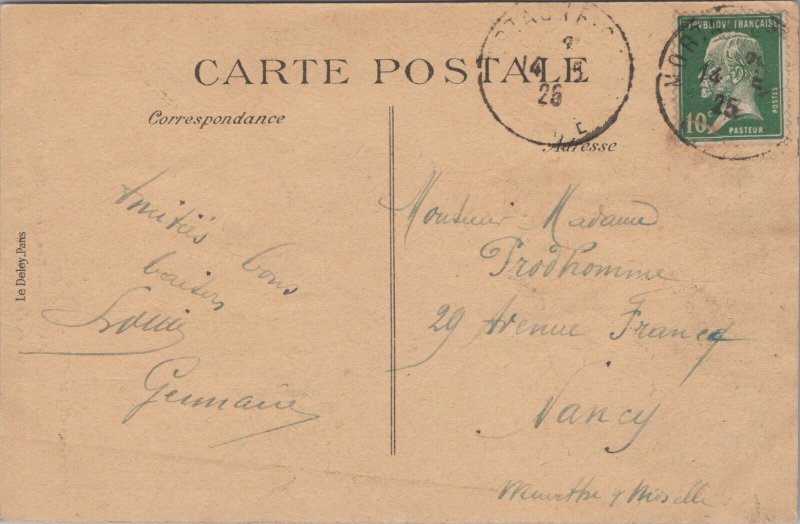 CARTE POSTALE
Correspondance
Adresse
REPUBLIQUE FRANÇAISE
10c
POSTES
PASTEUR
14
25
MOR
14
25
Le Deley. Paris
Amitiés
bons
baisers
Louis
Germaine
Monsieur - Madame
Prodhomme
29 Avenue
Nancy
Meurthe & Moselle